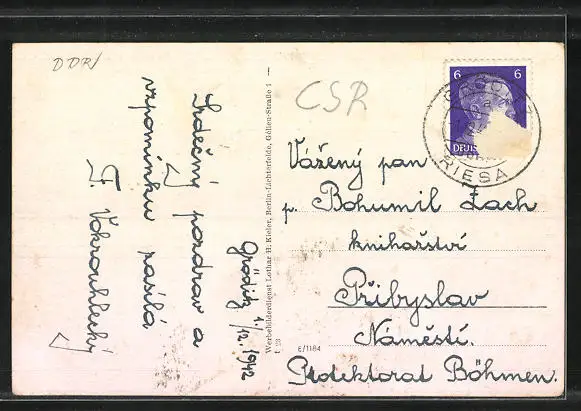 DDR
Srdečný pozdrav a
vzpomínku zasílá
F. Vokrouhlecký
Gröditz
1/12. 1942
Werbebilderdienst Lothar H. Kieler, Berlin-Lichterfelde, Gélieu-Straße 1
E/1184
ČSR
6 6
RIESA
Vážený pan
p. Bohumil Zach
knihařství
Přibyslav
Náměstí.
Protektorat Böhmen.